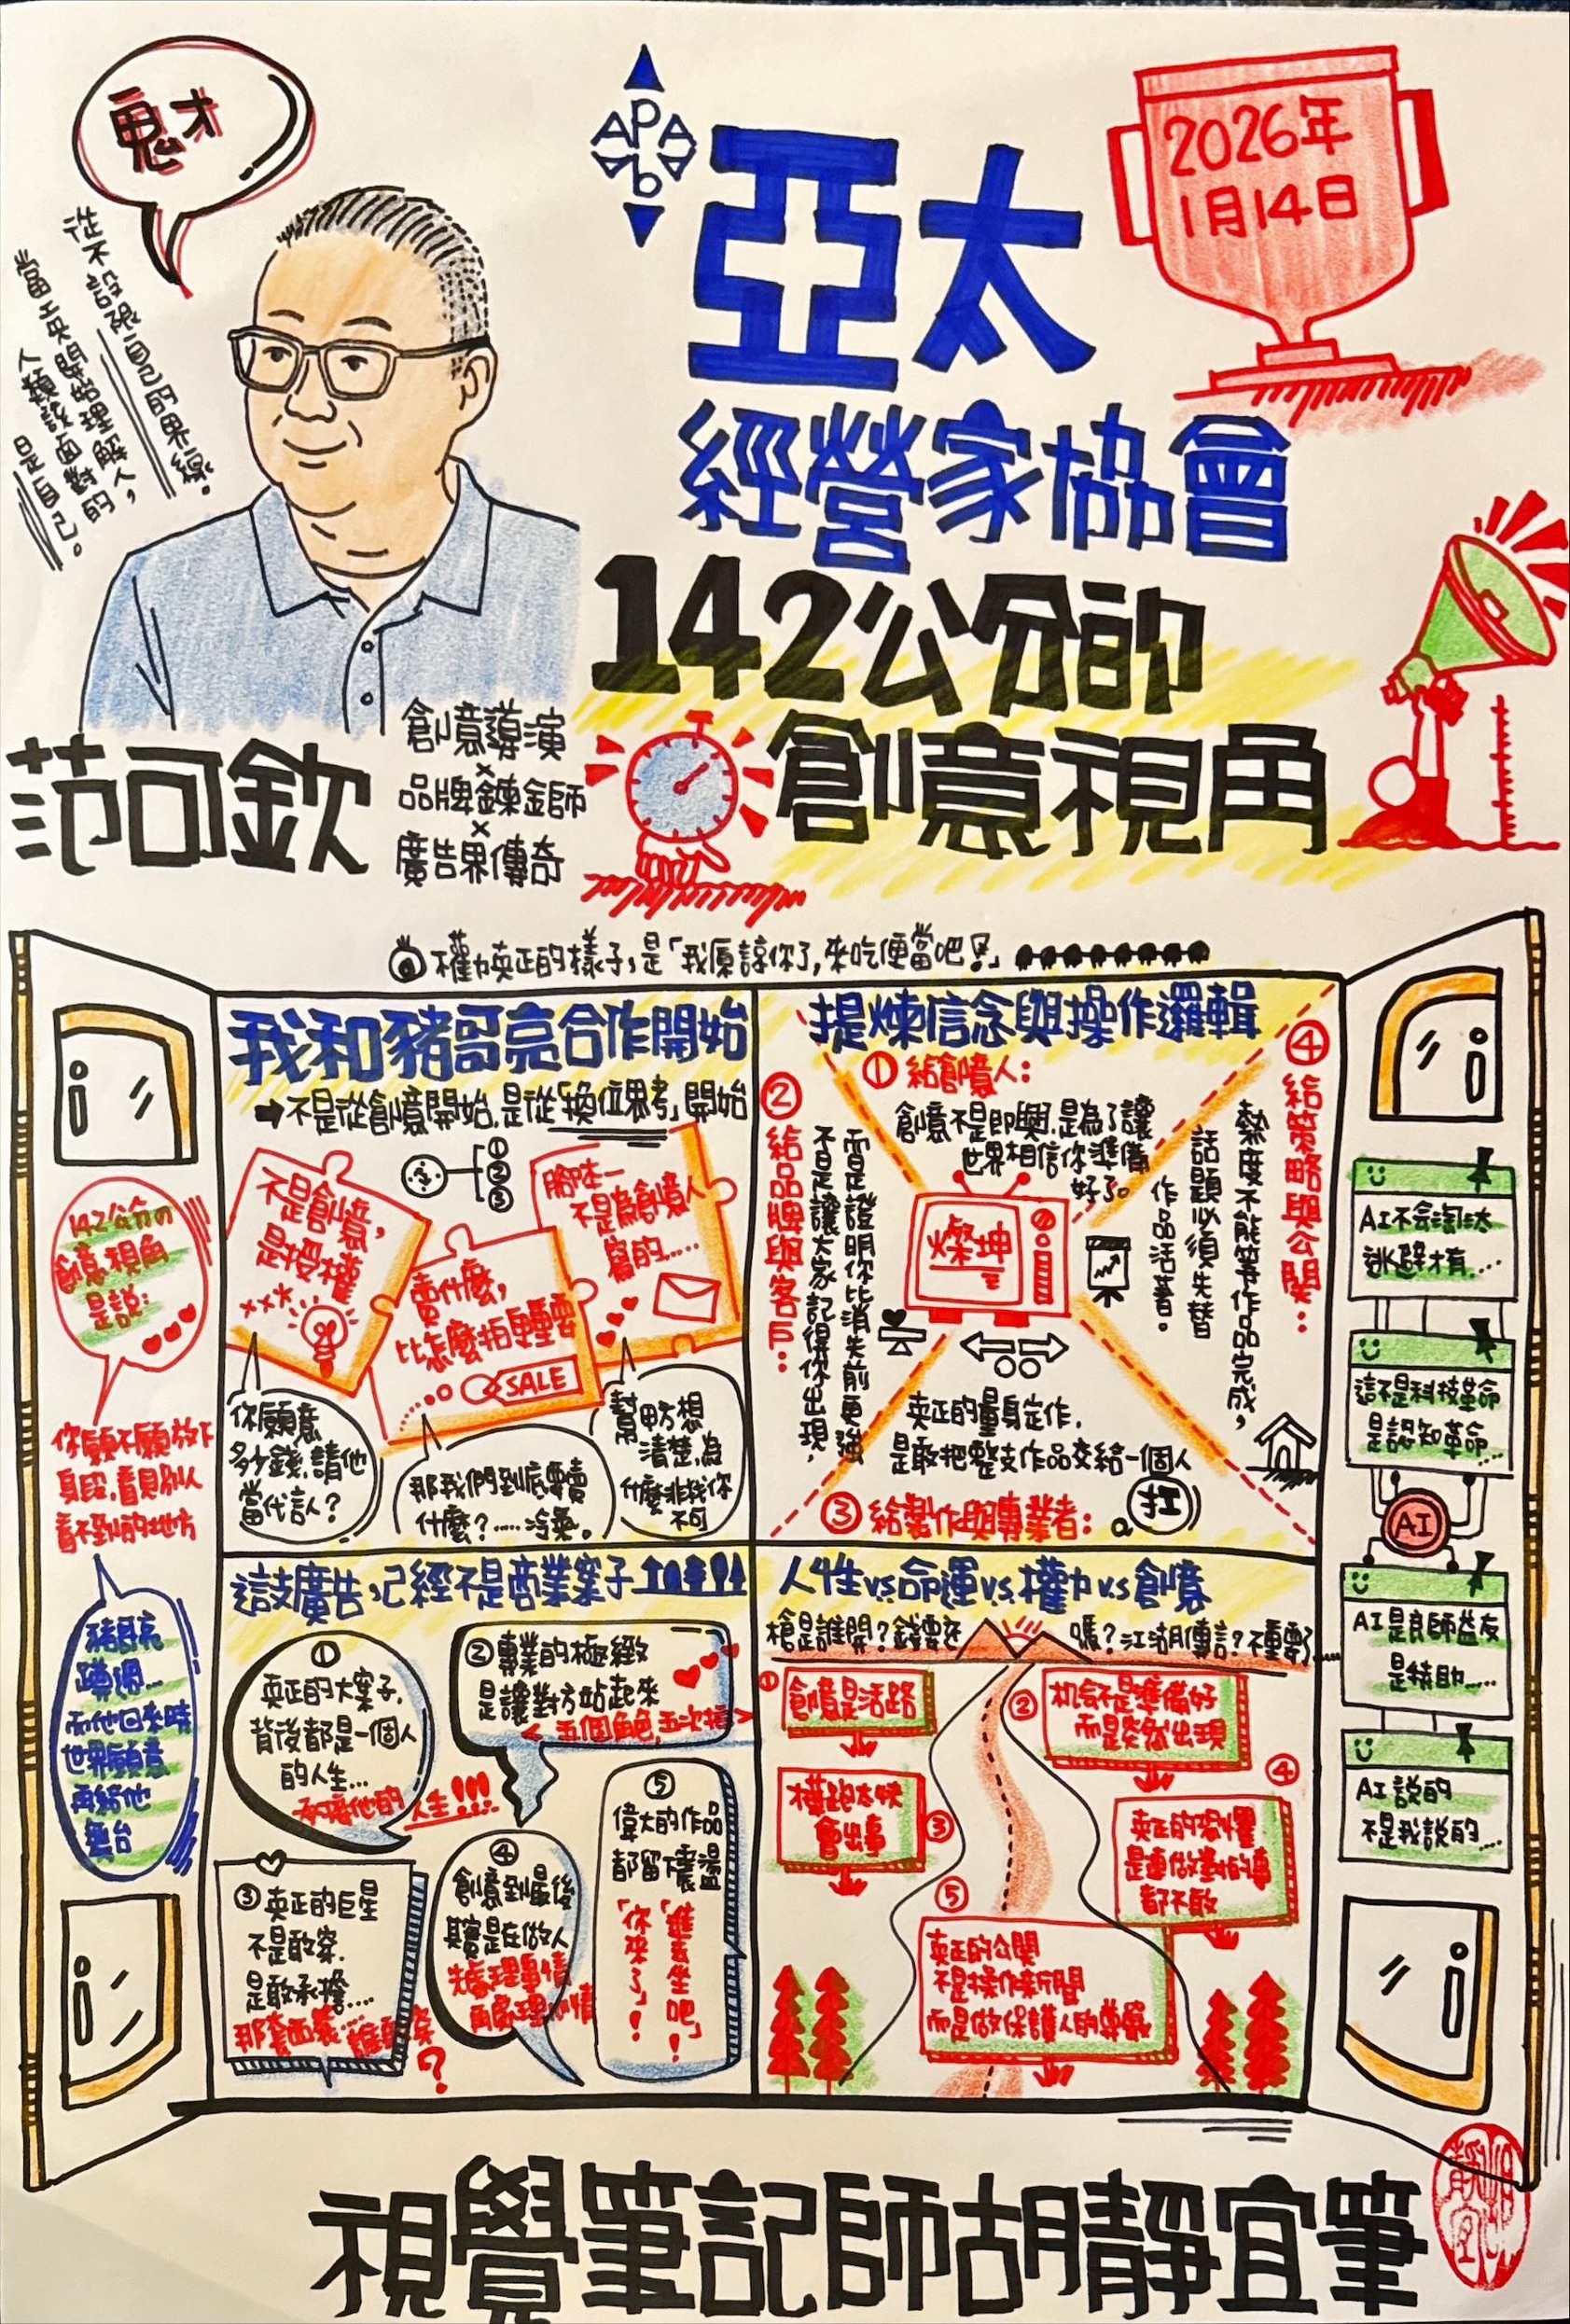 鬼才
從不設限自己的界線。
當AI開始理解人，
人類該面對的
是自己。
APAA
b
亞太
經營家協會
142公分的
創意視角
2026年
1月14日
范可欽
創意導演
×
品牌鍊金師
×
廣告界傳奇
權力真正的樣子，是「我原諒你了，來吃便當吧！」
142公分的
創意視角
是說：
你願不願放下
身段，看見別人
看不到的地方
豬哥亮
蹲過...
而他回來時
世界願意
再給他
舞台
我和豬哥亮合作開始
不是從創意開始，是從「換位思考」開始
①
②
③
不是創意，
是授權
賣什麼，
比怎麼拍更重要
SALE
腳本一
不是為創意人
寫的......
你願意
多少錢，請他
當代言人？
那我們到底要賣
什麼？.....冷氣。
幫甲方想
清楚，為
什麼非找你
不可
提煉信念與操作邏輯
① 給創意人：
創意不是即興，是為了讓
世界相信你準備
好了。
② 給品牌與客戶：
不是讓大家記得你出現，
而是證明你比消失前更強
燦坤
④ 給策略與公關：
熱度不能等作品完成，
話題必須先替
作品活著。
真正的量身定作，
是敢把整支作品交給一個人
扛
③ 給製作與專業者：
這支廣告，已經不是商業案子
①
真正的大案子，
背後都是一個人
的人生...
人生!!!
② 專業的極緻
是讓對方站起來
< 五個角色，五次換 >
③ 真正的巨星
不是敢穿，
是敢承擔....
那套西裝....誰要穿
？
④
創意到最後
其實是在做人
先處理事情
再處理心情
⑤
偉大的作品
都留下震盪
「進去坐吧」！
「你來了」！
人性vs.命運vs.權力vs.創意
槍是誰開？錢要在
嗎？江湖傳言？不重要.....
① 創意是活路
② 机会不是準備好
而是突然出現
③
橫跑太快
會出事
④
真正的恐懼
是連做對的事
都不敢
⑤
真正的公關
不是操作新聞
而是做保護人的尊嚴
AI不会淘汰
逃避才有....
這不是科技革命
是認知革命....
AI
AI是良師益友
是特助.....
AI說的
不是我說的....
視覺筆記師胡靜宜筆
胡靜宜